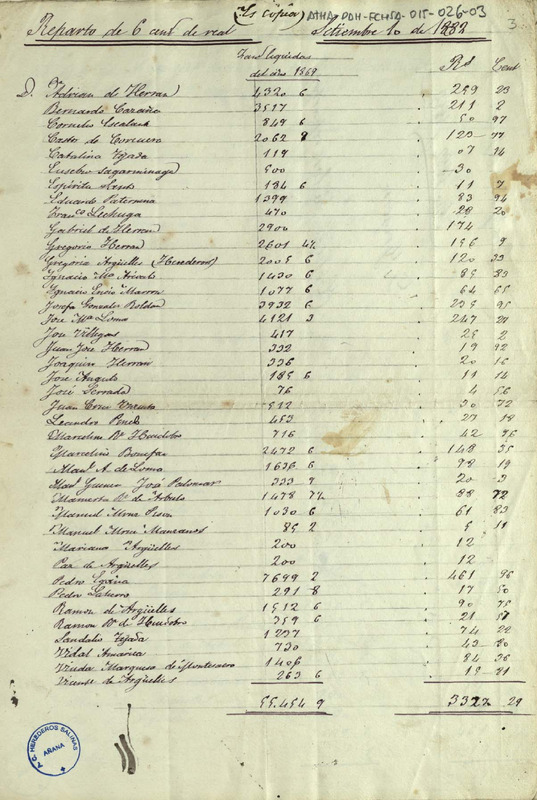 (Es copia) ATHA-DAH-FCHSA-015-026-03
3
Reparto de 6 cent. de real Setiembre 10 de 1882
Rs Cent
del año 1869
D. Adrian de Herran 4320 6 259 23
Bernardo 3517 211 2
Cornelio 849 6 50 97
Castor de Corcuera 2062 8 123 77
Catalina Tejada 119 07 14
Eusebio Sagarminaga 500 30
Espiritu Santo 184 6 11 7
Eduardo Paternina 1399 83 94
Franco Lechuga 470 28 20
Gabriel de Herran 2900 174
Gregorio Herran 2601 4½ 156 9
Gregoria Argüelles (Herederos) 2005 6 120 33
Ignacio Ma 1430 6 85 83
Ignacio 1077 6 64 65
Josefa Gonzalez Roldan 3932 6 235 95
Jose Ma Loma 4121 3 247 27
Jose Villegas 417 25 2
Juan Jose Herran 332 19 92
Joaquin Herran 336 20 16
Jose Angulo 185 6 11 14
José Serrada 76 4 56
Juan Cruz 512 30 72
Leandro 453 27 18
Marcelina Va Huidobro 716 42 96
Marcelino Bonifaz 2472 6 148 35
Manl A. de Loma 1636 6 98 19
Manl José Palomar 333 7 20 3
Mamerta Va de Arbulo 1478 7½ 88 72
Manuel 1030 6 61 83
Manuel Manzanos 85 2 5 11
Mariano Argüelles 200 12
Paz de Argüelles 200 12
Pedro Egaña 7699 2 461 96
Pedro 291 8 17 50
Ramon de Argüelles 1512 6 90 75
Ramon Va de Huidobro 359 6 21 57
Sandalio Tejada 1237 74 22
Vidal Amarica 730 43 80
Viuda Marquesa de Montenuevo 1406 84 36
Vicente de Argüelles 263 6 15 81
55.454 9 3327 29
T. G. HEREDEROS SALINAS
ARANA